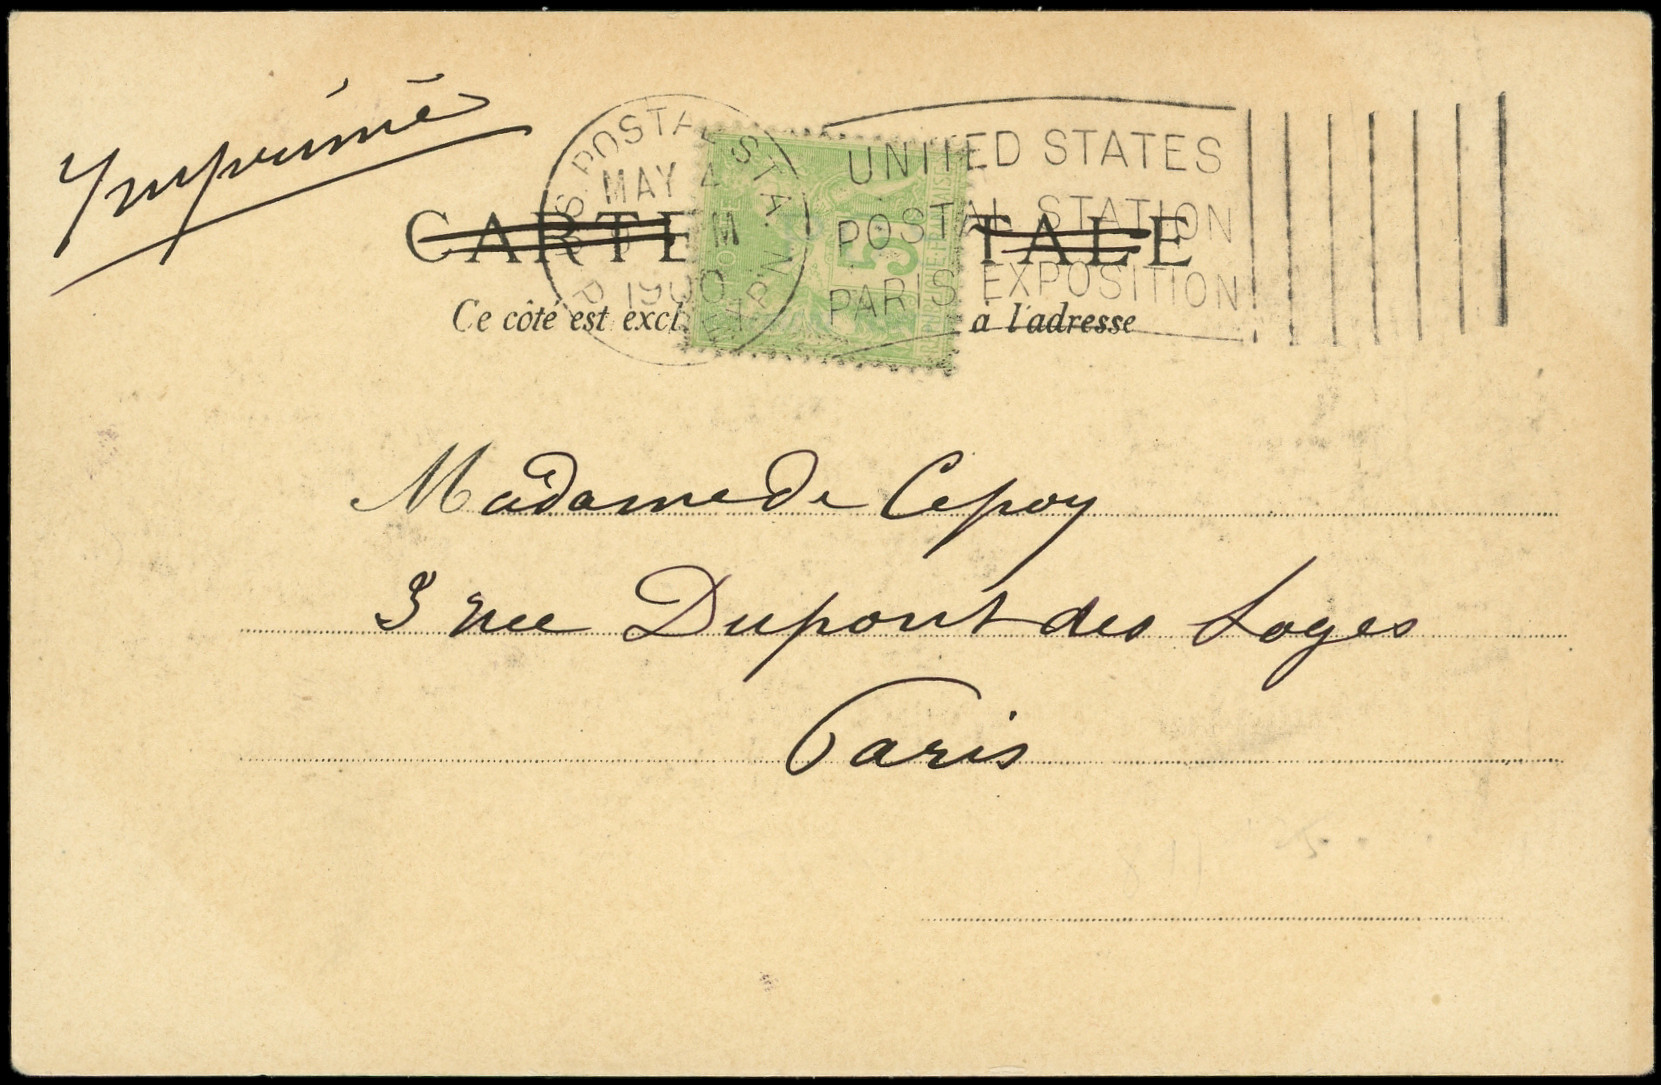 Imprimé
U.S. POSTAL STA. PARIS EXP'N
MAY 4
M
1900
UNITED STATES
POSTAL STATION
PARIS EXPOSITION
CARTE TALE
5
Ce côté est excl à l'adresse
Madame de Cepoy
3 rue Dupont des Loges
Paris